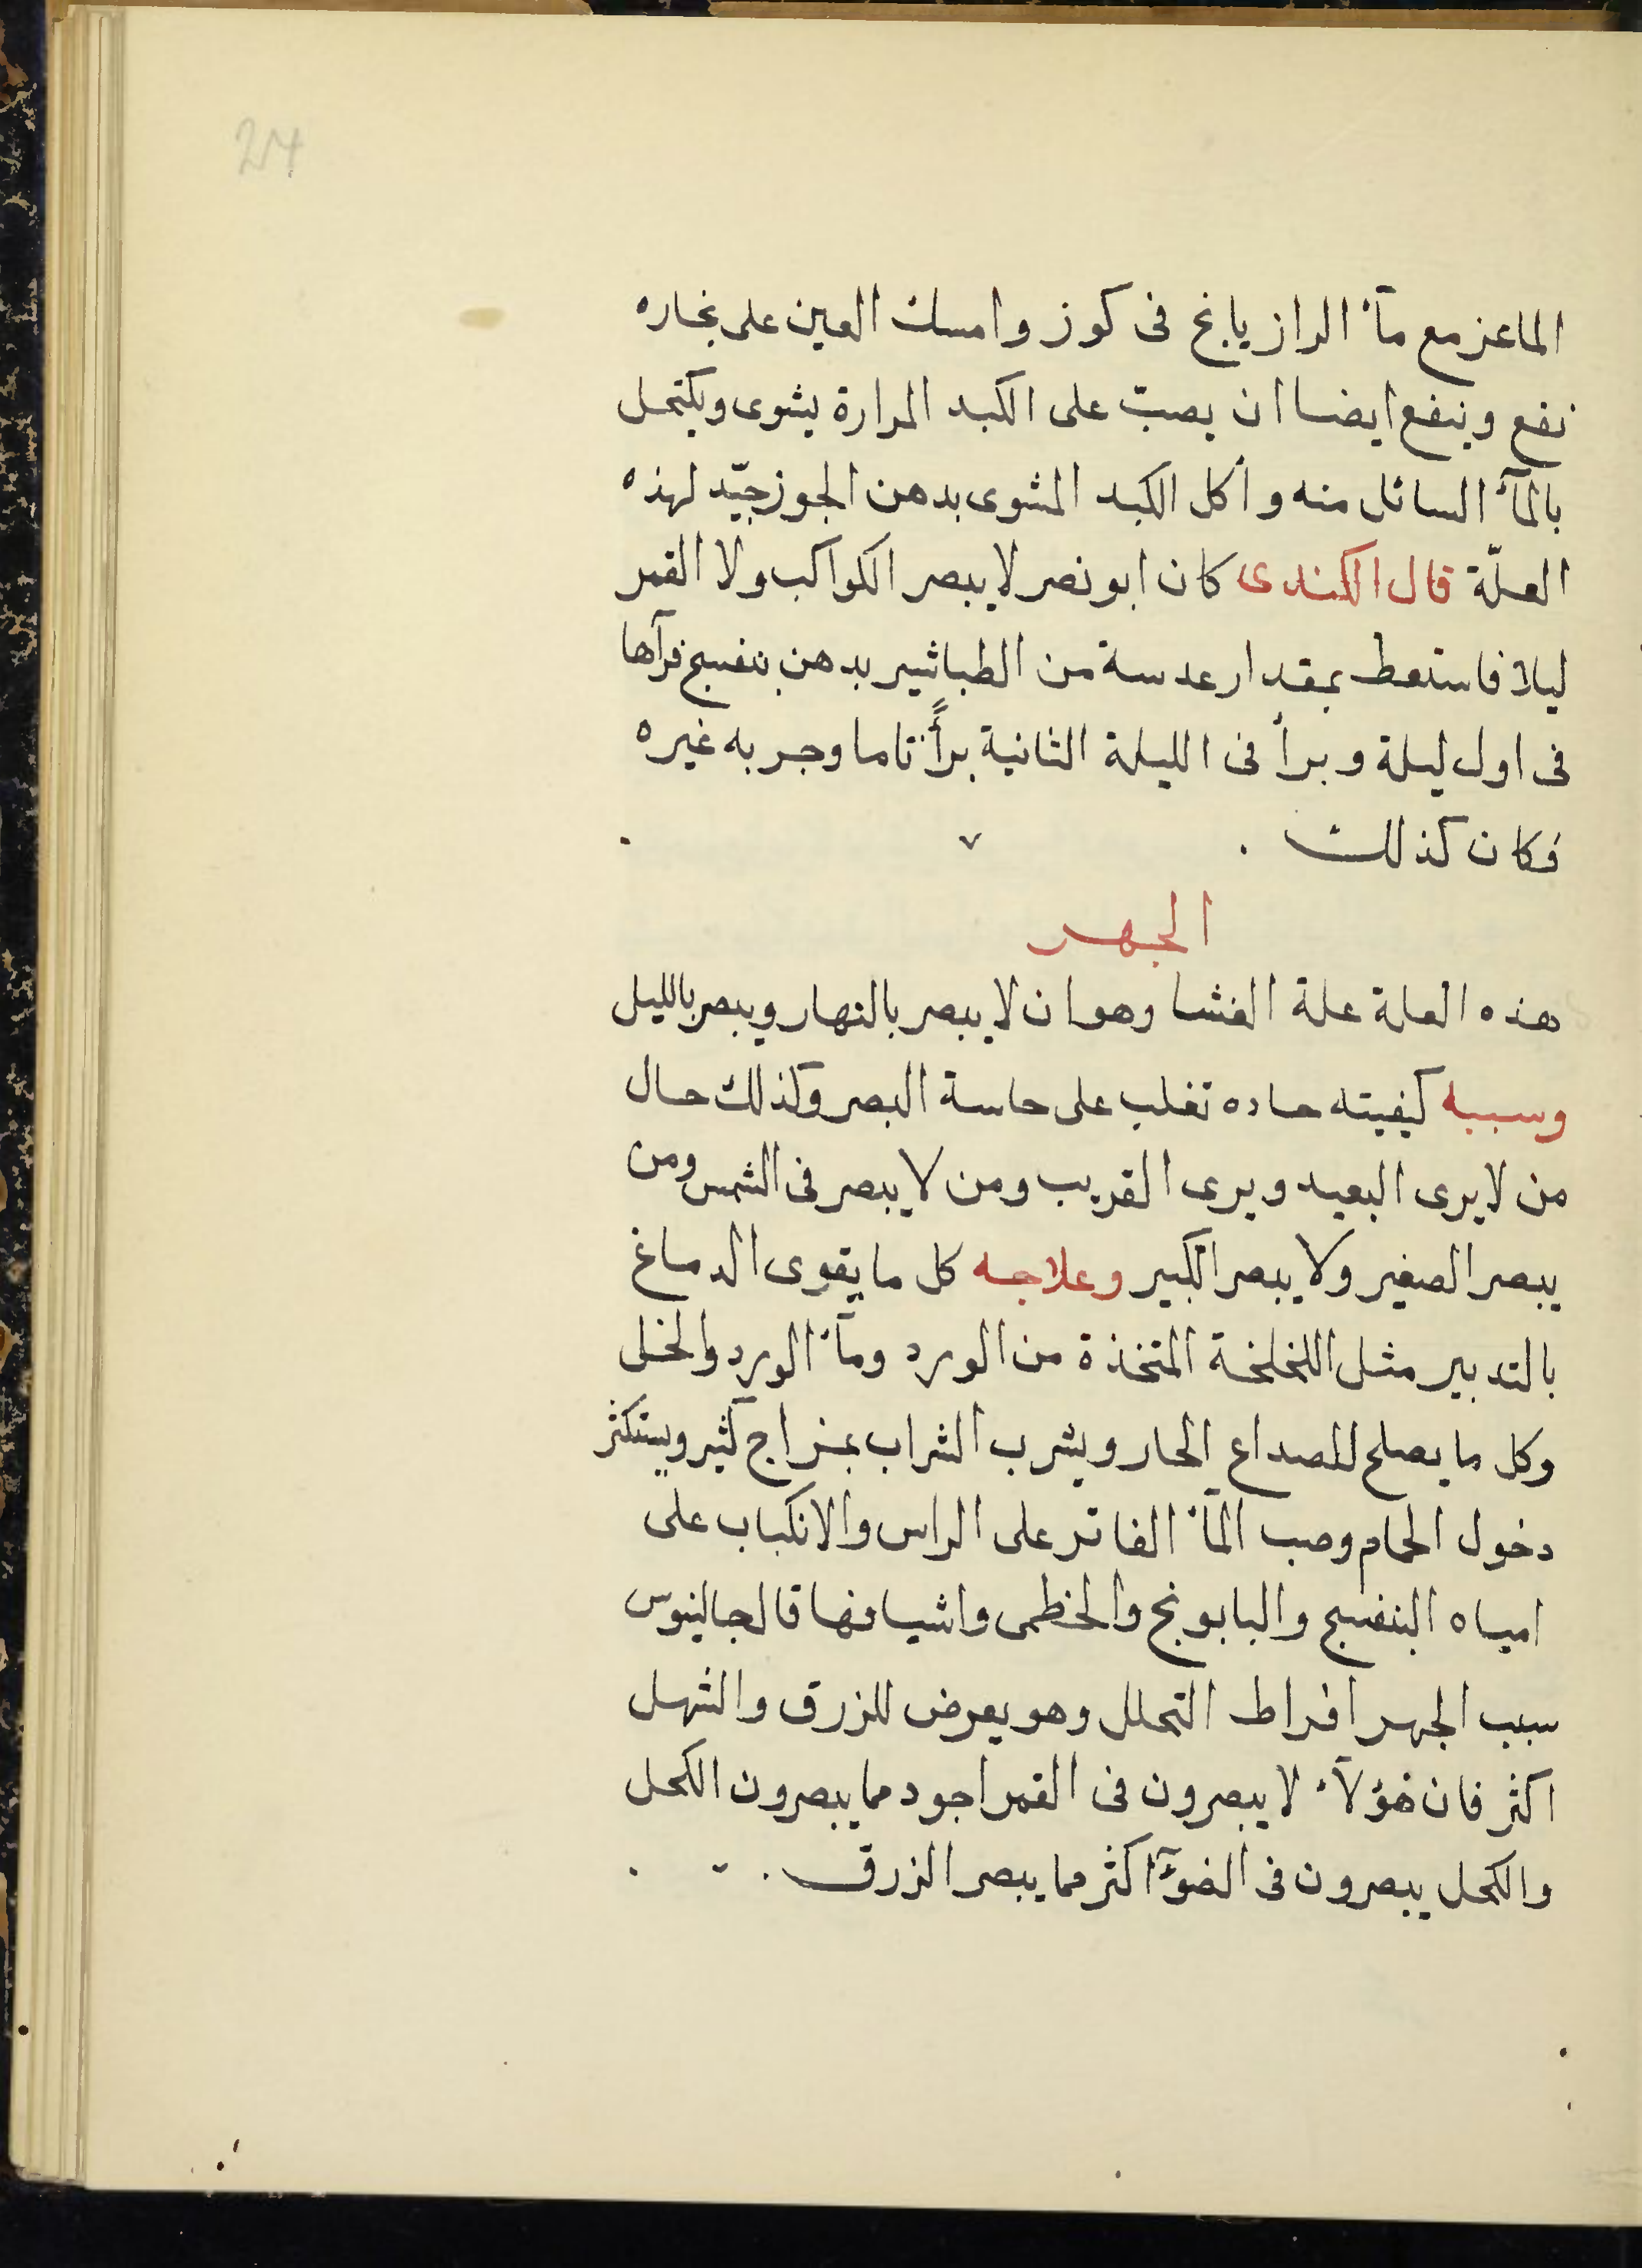 24
الماعز مع مآء الرازيانج فى كوز وامسك العين على بخاره
نفع وينفع ايضا ان يصبّ على الكبد المرارة يشوى ويكتحل
بالمآء السائل منه وأكل الكبد المشوى بدهن الجوز جيّد لهذه
العلّة قال الكندى كان ابو نصر لا يبصر الكواكب ولا القمر
ليلا فاستعط بمقدار عدسة من الطباشير بدهن بنفسج فرآها
فى اول ليلة وبرأ فى الليلة الثانية برأً تاما وجربه غيره
فكان كذلك .
الجهر
هذه العلة علة الغشا وهو ان لا يبصر بالنهار ويبصر بالليل
وسببه كيفيته حاده تغلب على حاسة البصر وكذلك حال
من لا يرى البعيد ويرى القريب ومن لا يبصر فى الشمس ومن
يبصر الصغير ولا يبصر الكبير وعلاجه كل ما يقوى الدماغ
بالتدبير مثل اللخلخة المتخذة من الورد ومآء الورد والخل
وكل ما يصلح للصداع الحار ويشرب الشراب بمزاج كثير ويستكثر
دخول الحمام وصب المآء الفاتر على الراس والانكباب على
امياه البنفسج والبابونج والخطمى واشيافها قال جالينوس
سبب الجهر افراط التحلل وهو يعرض للزرق والشهل
اكثر فان هؤلآء لا يبصرون فى القمر اجود مما يبصرون الكحل
والكحل يبصرون فى الضوء اكثر مما يبصر الزرق .